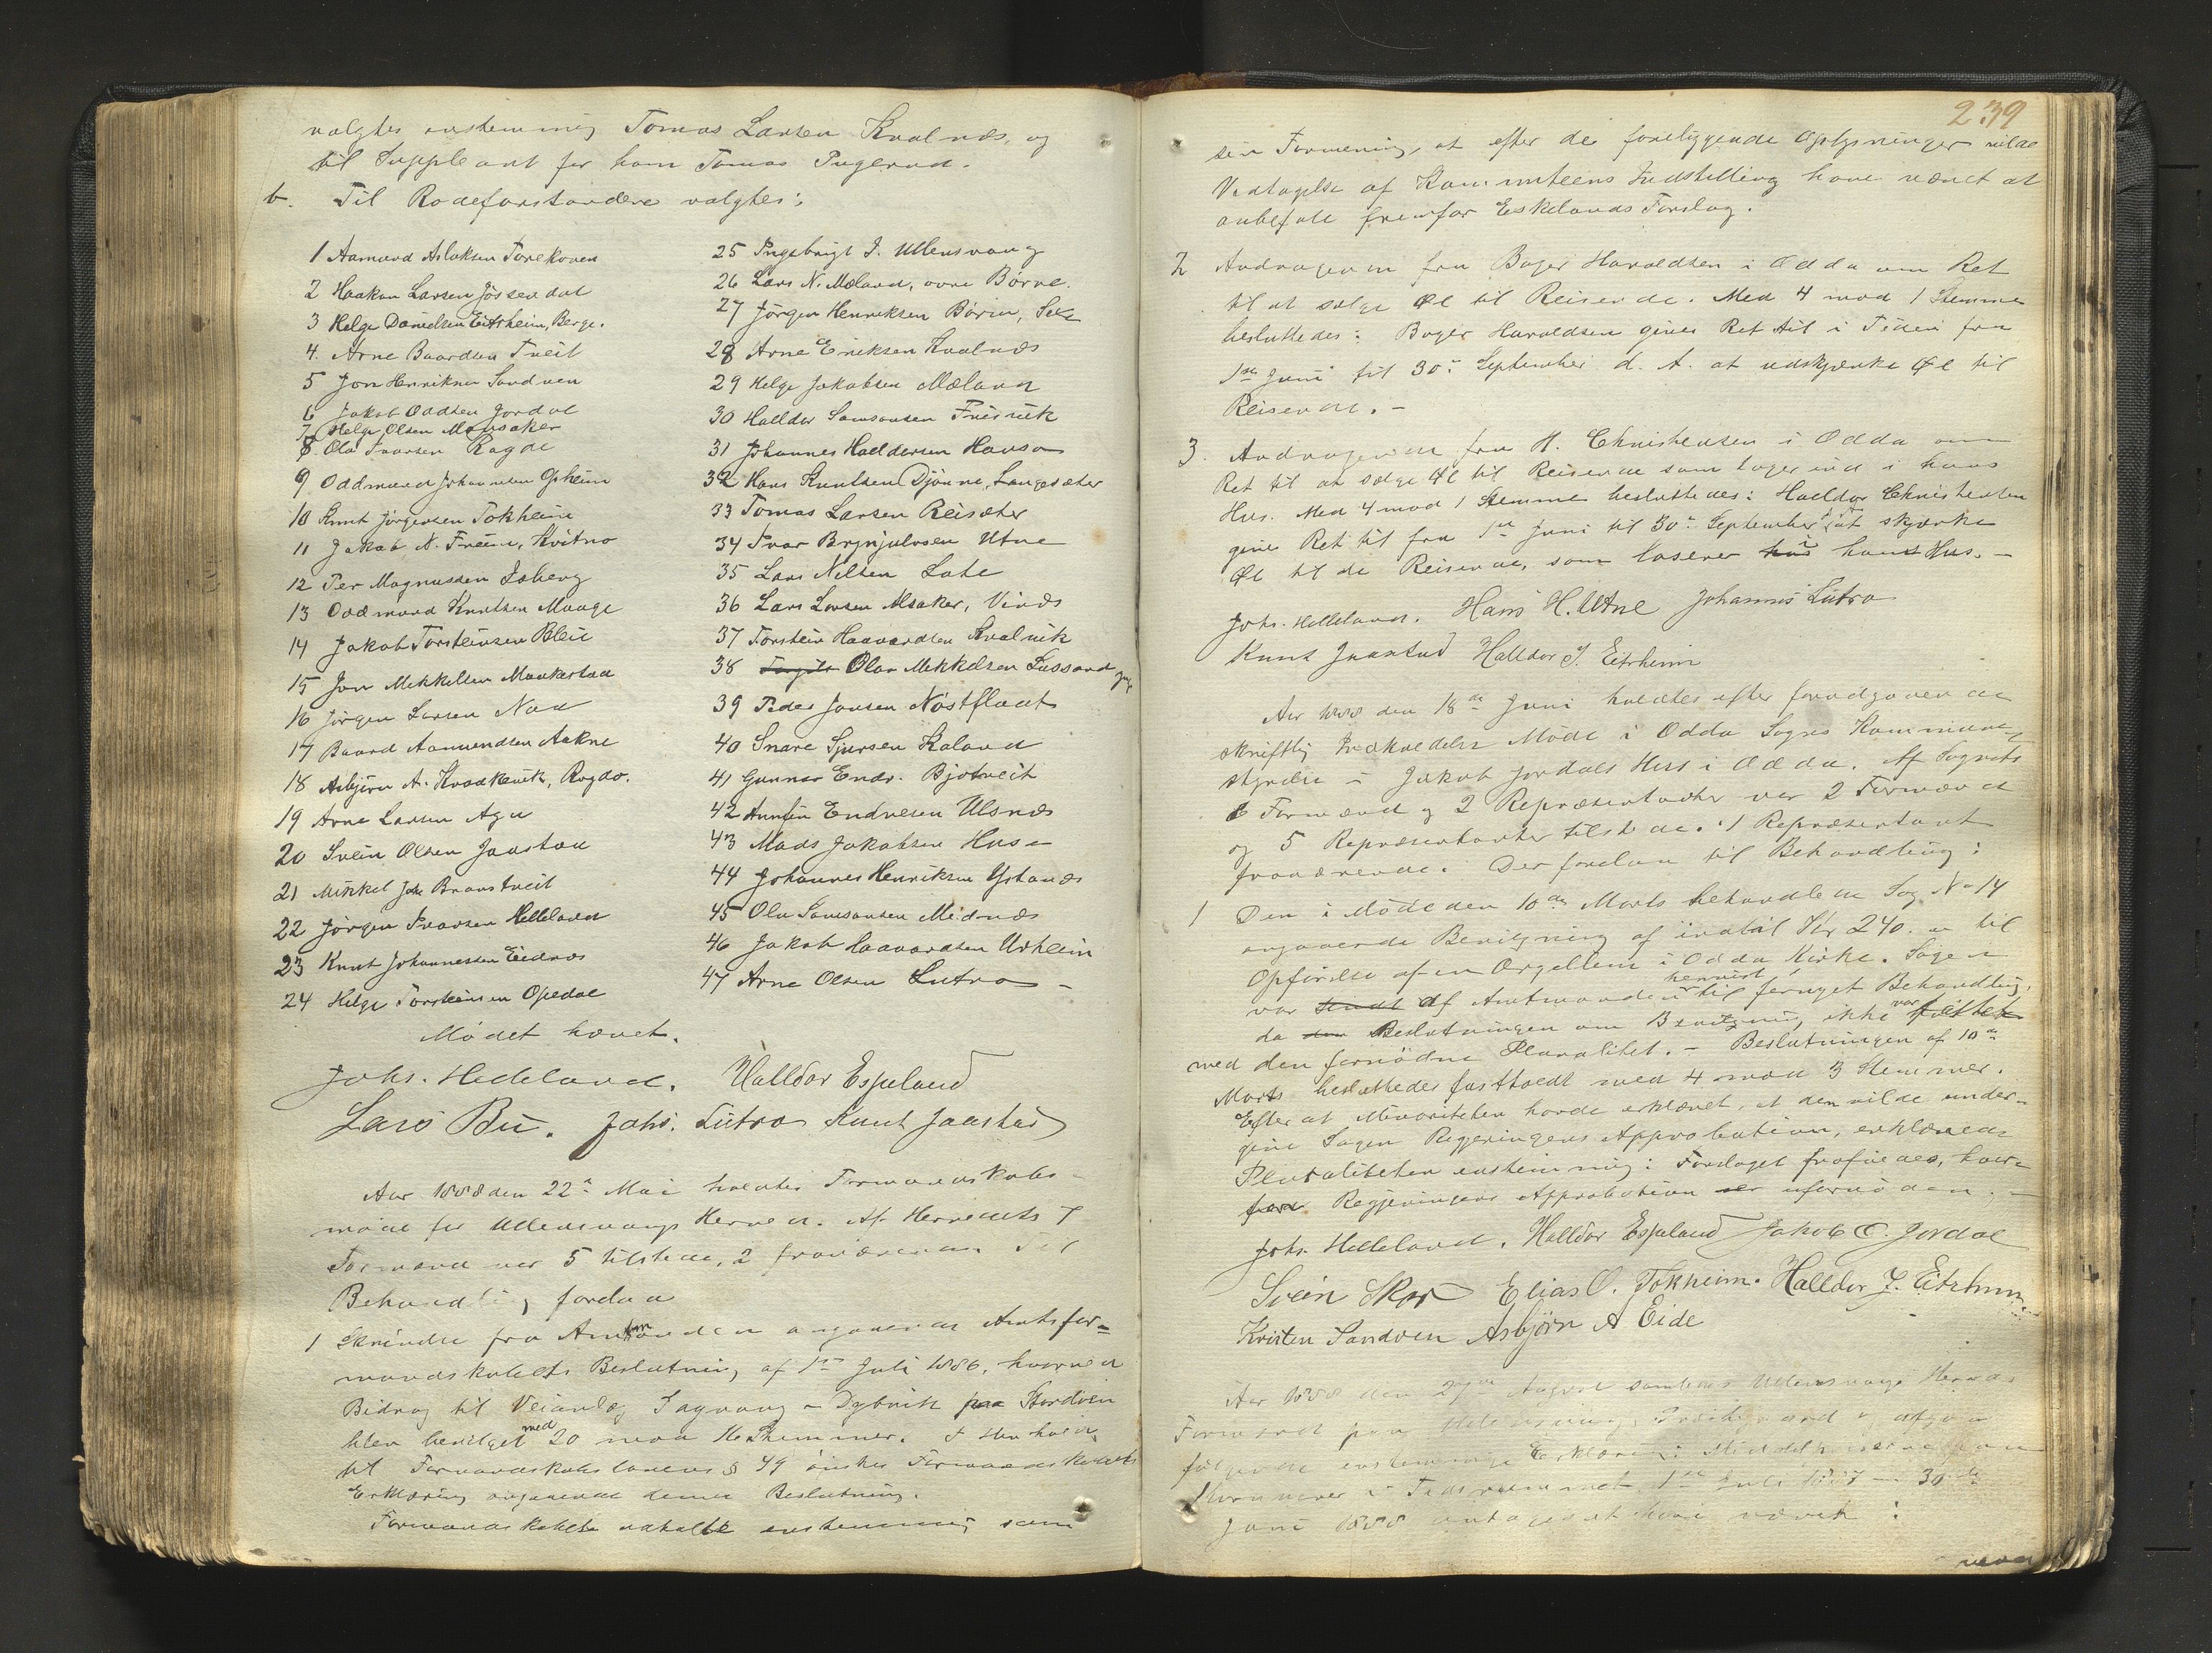 valgtes enstemmig Tomas Larsen Kvalnæs, og
til Suppleant for ham Tomas
b. Til Rodeforstandere valgtes:
1 Aamund Aslaksen Torekoven
2 Haakon Larsen Jøssendal
3 Helge Danielsen Eitrheim, Berge.
4. Arne Baardsen Tveit
5 Jon Henriksen Sandven
6 Jakob Oddsen Jordal
7 Helge Olsen Mannsaker
8. Ola Ivarsen Ragde
9 Oddmund Johannesen Opheim
10 Knut Jørgensen Tokheim
11 Jakob N. Freim, Kvitno
12 Per Magnussen Isberg
13 Oddmund Knutsen Maage
14 Jakob Torsteinsen Bleie
15 Jon Mikkelsen Maakestad
16 Jørgen Larsen Naa
17 Baard Aamundsen Aakne
18 Asbjørn A. Kvadkevik, Rogdo.
19 Arne Larsen Aga
20 Svein Olsen Jaastad
21 Mikkel Joh. Branstveit
22 Jørgen Ivarsen Helleland
23 Knut Johannessen Eidnæs
24 Helge Torsteinsen Opedal
25 Ingebrigt I. Ullensvang
26 Lars N. Mæland, øvre Børve.
27 Jørgen Henriksen Børve,
28 Arne Eriksen Kvalnæs
29 Helge Jakobsen Mæland
30 Halldor Samsonsen Fresvik
31 Johannes Halldorsen Hauso
32 Hans Knutsen Djønne, Langesæter
33 Tomas Larsen Reisæter
34 Ivar Brynjulvsen Utne
35 Lars Nilsen Lote
36 Lars Larsen Alsaker, Vinæs
37 Torstein Haavardsen Kvalvik
38 Olav Mikkelsen Lussand
39 Peder Jonsen Nøstflaat
40 Snare Sjursen Kaland
41 Gunnar Endr. Bjotveit
42 Amfin Endresen Ulsnæs
43 Mads Jakobsen Huse
44 Johannes Henriksen Ystanæs
45 Ola Samsonsen Midnæs
46 Jakob Haavardsen Urheim
47 Arne Olsen Lutro -
Mødet hævet.
Johs. Helleland. Halldor Espeland
Lars Bu. Johs. Lutro Knut Jaastad
Aar 1888 den 22de Mai holdtes Formandskabs-
møde for Ullensvangs Herred. Af Herredets 7
Formænd var 5 tilstede, 2 fraværende. Til
Behandling forelaa
1 Skrivelse fra Amtmanden angaaende Amtsfor-
mandskabets Beslutning af 1ste Juli 1886, hvorved
Bidrag til Veianlæg - Dybvik paa Stordøen
blev bevilget med 20 mod 16 Stemmer. I Henhold
til Formandskabslovens § 49 ønskes Formandskabets
Erklæring angaaende denne Beslutning.
Formandskabet udtalte enstemmig som
239
sin Formening, at efter de foreliggende Oplysninger vilde
Vedtagelse af Kommiteens Indstilling have været at
anbefale fremfor Eskelands Forslag.
2 Andragende fra Boger Haraldsen i Odda om Ret
til at sælge Øl til Reisende. Med 4 mod 1 Stemme
besluttedes: Boger Haraldsen gives Ret til i Tiden fra
1ste Juni til 30te September d. A. at udskjænke Øl til
Reisende. -
3. Andragende fra H. Christensen i Odda om
Ret til at sælge Øl til Reisende som tager ind i hans
Hus. Med 4 mod 1 Stemme besluttedes: Halldor Christensen
gives Ret til fra 1ste Juni til 30te September d. A. at skjænke
Øl til de Reisende, som losere i hans Hus. -
Johs. Helleland. Hans H. Utne Johannes Lutro
Knut Jaastad Halldor J. Eitrheim
Aar 1888 den 18de Juni holdtes efter forudgaaende
skriftlig Indkaldelse Møde i Odda Sogns Kommune-
styrelse i Jakob Jordals Hus i Odda. Af Sognets
Formænd og 2 Repræsentanter var 2 Formænd
og 5 Repræsentanter tilstede. 1 Repræsentant
fraværende. Der forelaa til Behandling:
1 Den i Møde den 10de Marts behandlede Sag No 14
angaaende Bevilgning af indtil Kr 240. til
Opførelse af en Orgellem i Odda Kirke. Sagen
var sendt af Amtmanden henvist til fornyet Behandling,
da Beslutningen om Bevilgning ikke var fattet
med den fornødne Pluralitet. - Beslutningen af 10de
Marts besluttedes fastholdt med 4 mod 3 Stemmer.
Efter at Minoriteten havde erklæret, at den vilde under-
give Sagen Regjeringens Approbation, erklærede
Pluraliteten enstemmig: Forslaget frafaldes, hvor-
for Regjeringens Approbation er ufornøden. -
Johs. Helleland. Halldor Espeland Jakob O. Jordal
Svein Skar Elias O. Tokheim. Halldor J. Eitrheim
Kristen Sandven Asbjørn A Eide
Aar 1888 den 27de August samledes Ullensvangs Herreds
Formænd paa Prestegaard og afgav
følgende enstemmige Erklæring: Middelpriserne paa
Kornvarer i Tidsrummet 1ste Juli 1887 - 30te
Juni 1888 antages at have været: